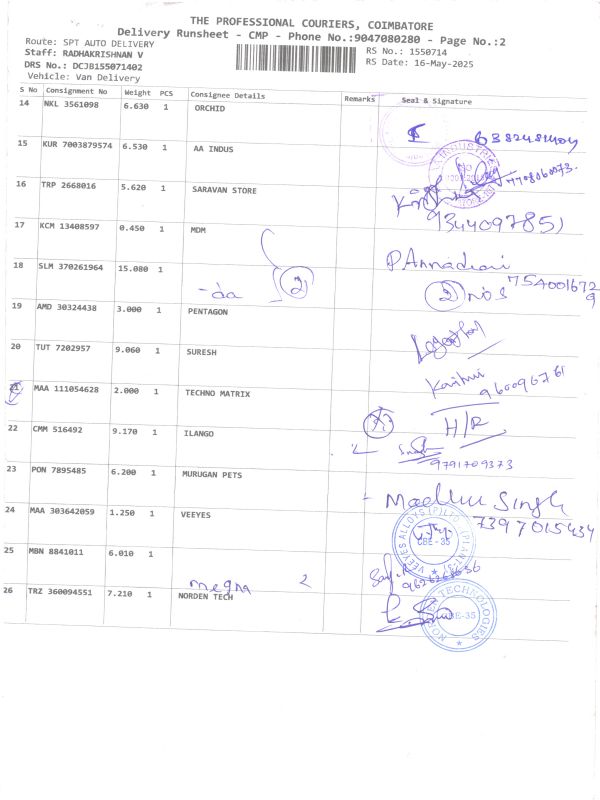 THE PROFESSIONAL COURIERS, COIMBATORE
Delivery Runsheet - CMP - Phone No.:9047080280 - Page No.:2
Route: SPT AUTO DELIVERY
Staff: RADHAKRISHNAN V RS No.: 1550714
DRS No.: DCJB155071402 RS Date: 16-May-2025
Vehicle: Van Delivery
S No Consignment No Weight PCS Consignee Details Remarks Seal & Signature
14 NKL 3561098 6.630 1 ORCHID
15 KUR 7003879574 6.530 1 AA INDUS
16 TRP 2668016 5.620 1 SARAVAN STORE
9344097851
17 KCM 13408597 0.450 1 MDM
P. Annadurai
18 SLM 370261964 15.080 1 -da 2 2 NOS 7540016729
19 AMD 30324438 3.000 1 PENTAGON
20 TUT 7202957 9.060 1 SURESH
21 MAA 111054628 2.000 1 TECHNO MATRIX H/R
22 CMM 516492 9.170 1 ILANGO
9791709373
23 PON 7895485 6.200 1 MURUGAN PETS Madhu Singh
7397015434
24 MAA 303642059 1.250 1 VEEYES VEEYES ALLOYS (P) LTD CBE-35
25 MBN 8841011 6.010 1 megna 2
26 TRZ 360094551 7.210 1 NORDEN TECH TECHNOLOGIES CBE-35